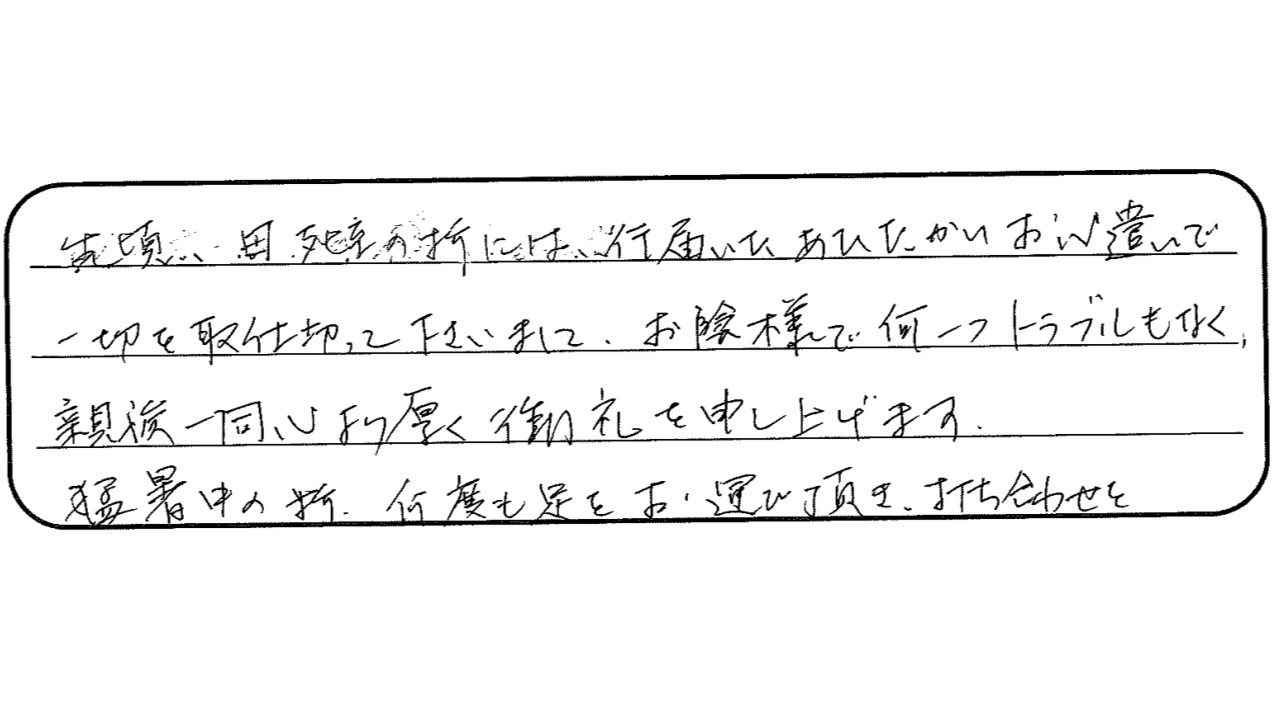 先頃、母 死去の折には、行届いたあたたかいお心遣いで
一切を取仕切って下さいまして、お陰様で何一つトラブルもなく、
親族一同心より厚く御礼を申し上げます。
猛暑中の折、何度も足をお運び頂き、打ち合わせを